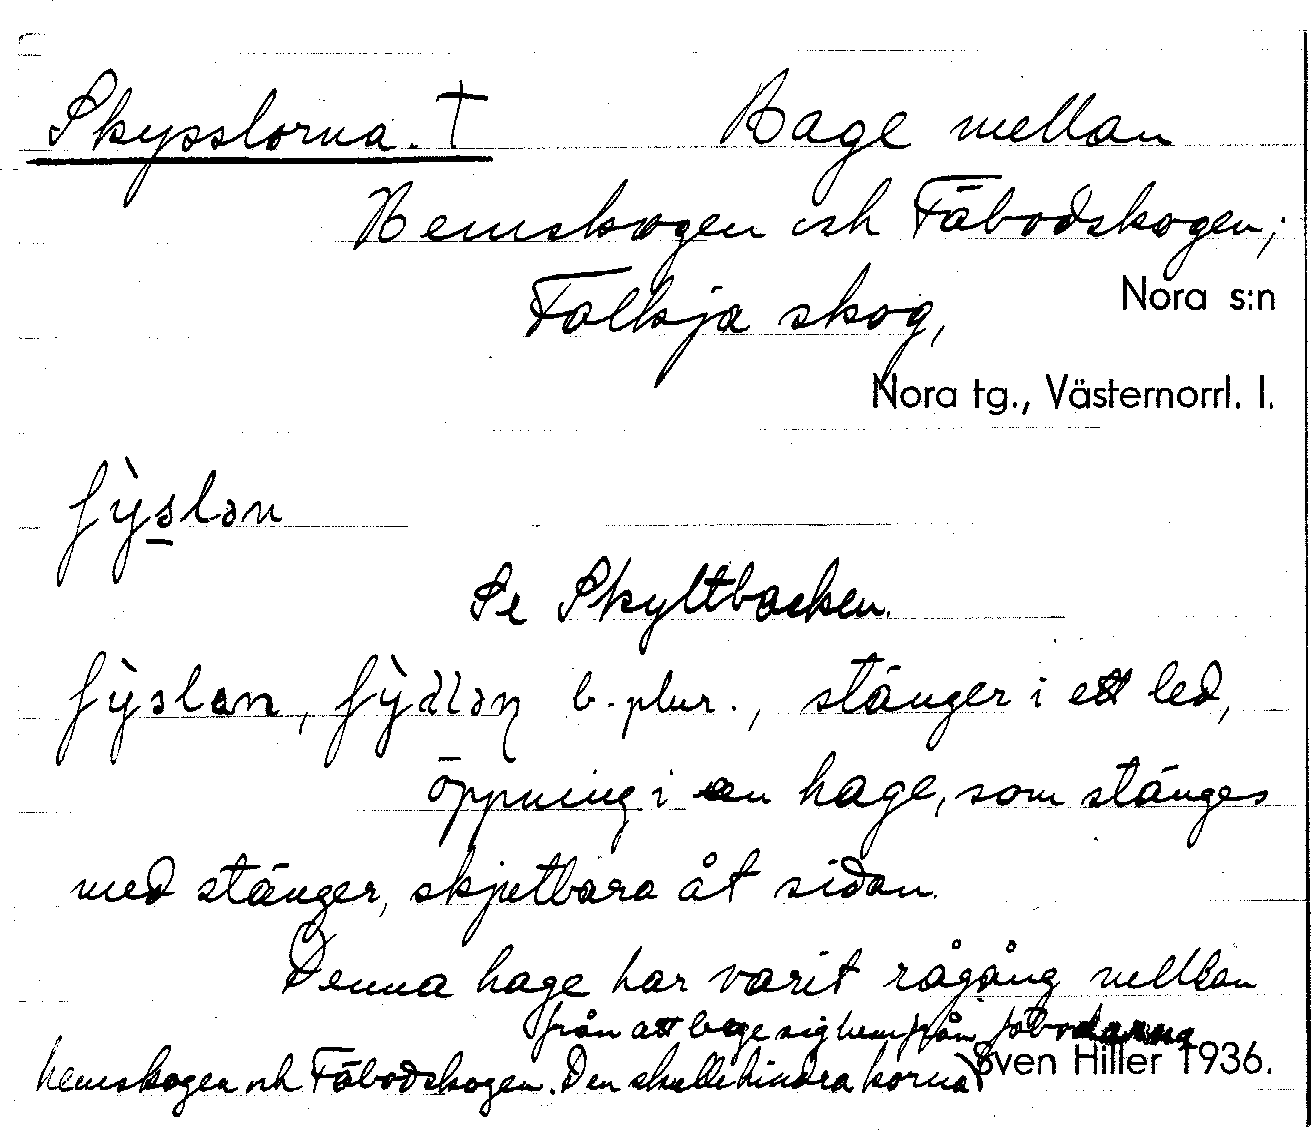 Skysslorna. † Hage mellan
Hemskogen och Fäbodskogen;
Falkja skog, Nora s:n
Nora tg., Västernorrl. l.
ʃỳslən
Se Skyltbacken.
ʃỳslan, b. plur., stänger i ett led,
öppning i en hage, som stänges
med stänger, skjutbara åt sidan.
Denna hage har varit rågång mellan
från att bege sig hem från fäbodarna
hemskogen och Fäbodskogen. Den skulle hindra korna
Sven Hiller 1936.